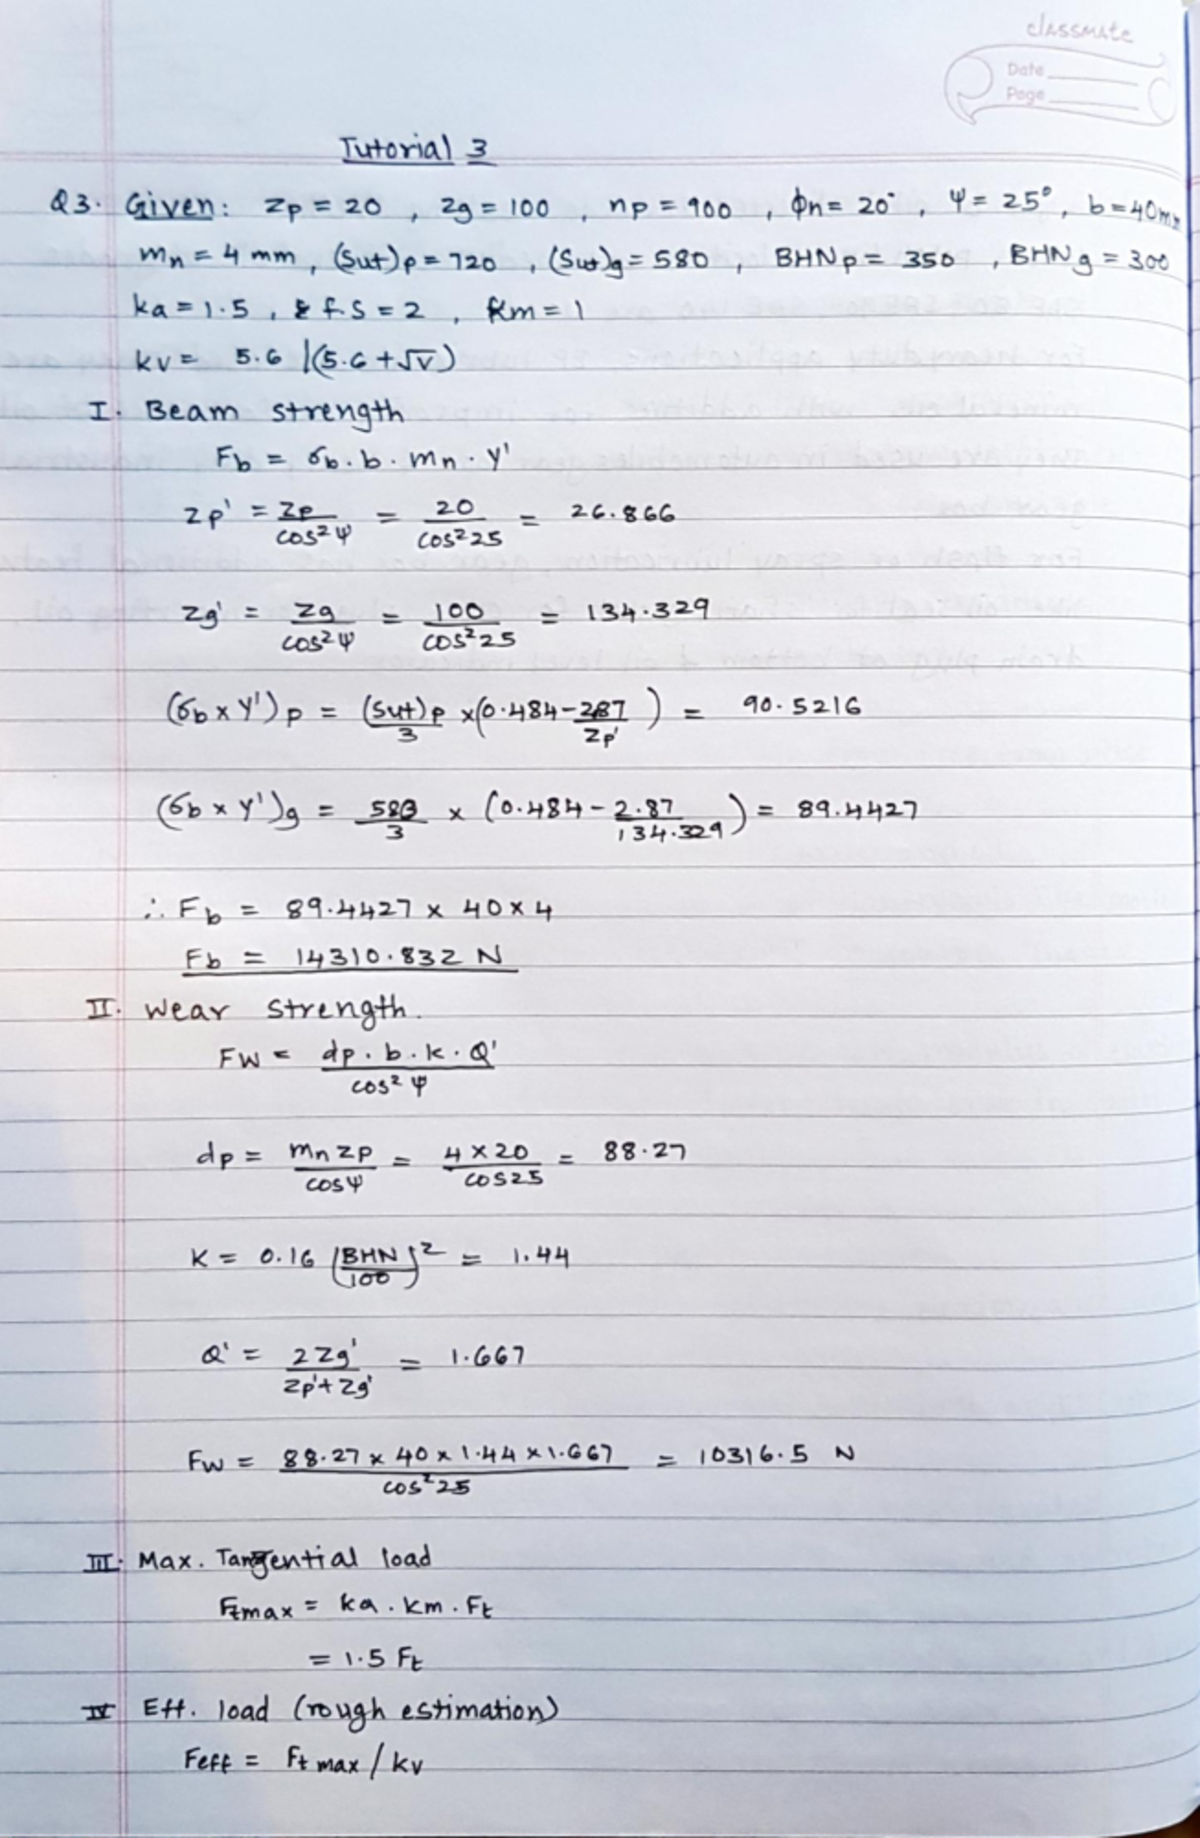 classmate
Date
Page
Tutorial 3
Q3. Given: Zp = 20 , Zg = 100 , np = 900 , ϕn = 20° , Ψ = 25° , b = 40mm
mn = 4 mm , (Sut)p = 720 , (Sut)g = 580 , BHNp = 350 , BHNg = 300
ka = 1.5 , & f.S = 2 , km = 1
kv = 5.6 / (5.6 + √V)
I. Beam strength
Fb = σb . b . mn . Y'
Zp' = Zp / cos²Ψ = 20 / cos²25 = 26.866
Zg' = Zg / cos²Ψ = 100 / cos²25 = 134.329
(σb x Y')p = (Sut)p / 3 x (0.484 - 287 / Zp') = 90.5216
(σb x Y')g = 580 / 3 x (0.484 - 2.87 / 134.329) = 89.4427
∴ Fb = 89.4427 x 40 x 4
Fb = 14310.832 N
II. Wear strength.
Fw = dp . b . k . Q' / cos²Ψ
dp = mn Zp / cosΨ = 4 x 20 / cos25 = 88.27
K = 0.16 (BHN / 100)² = 1.44
Q' = 2Zg' / Zp' + Zg' = 1.667
Fw = 88.27 x 40 x 1.44 x 1.667 / cos²25 = 10316.5 N
III. Max. Tangential load
Ftmax = ka . km . Ft
= 1.5 Ft
IV Eff. load (rough estimation)
Feff = Ft max / kv